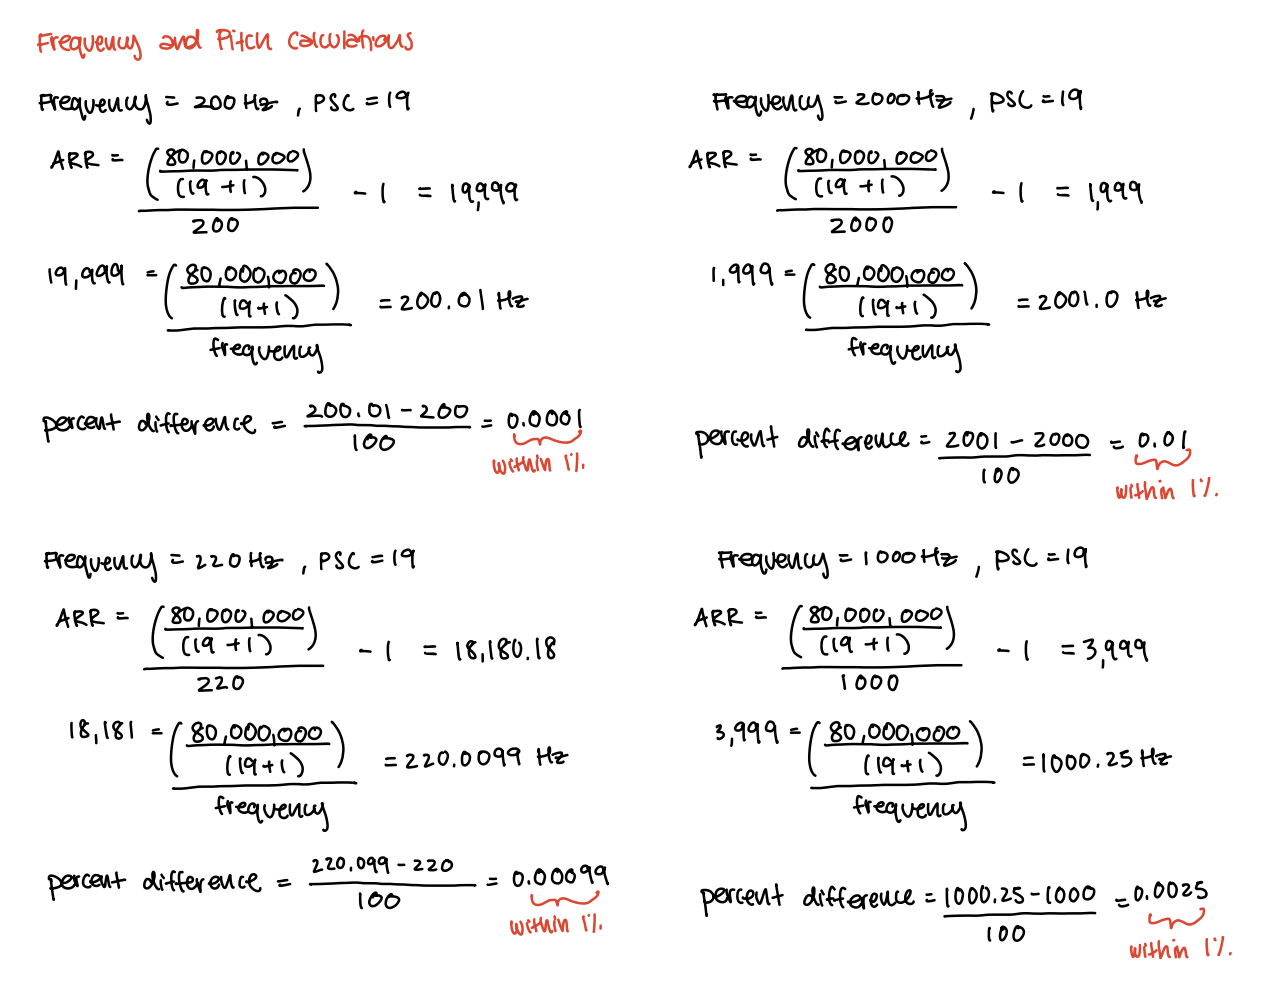 Frequency and Pitch Calculations
Frequency = 200 Hz , PSC = 19
ARR = ((80,000,000)/(19 + 1))/200 - 1 = 19,999
19,999 = ((80,000,000)/(19+1))/frequency = 200.01 Hz
percent difference = (200.01 - 200)/100 = 0.0001
within 1%.
Frequency = 2000 Hz , PSC = 19
ARR = ((80,000,000)/(19 + 1))/2000 - 1 = 1,999
1,999 = ((80,000,000)/(19+1))/frequency = 2001.0 Hz
percent difference = (2001 - 2000)/100 = 0.01
within 1%.
Frequency = 220 Hz , PSC = 19
ARR = ((80,000,000)/(19 + 1))/220 - 1 = 18,180.18
18,181 = ((80,000,000)/(19+1))/frequency = 220.0099 Hz
percent difference = (220.099 - 220)/100 = 0.00099
within 1%.
Frequency = 1000 Hz , PSC = 19
ARR = ((80,000,000)/(19 + 1))/1000 - 1 = 3,999
3,999 = ((80,000,000)/(19+1))/frequency = 1000.25 Hz
percent difference = (1000.25 - 1000)/100 = 0.0025
within 1%.